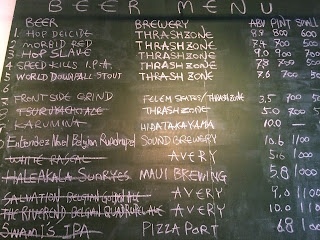 BEER MENU
BEER BREWERY ABV PINT SMALL
1 HOP DEICIDE THRASHZONE 9.9 800 600
2 MORBID RED THRASHZONE 7.4 700 500
3 HOP SLAVE THRASHZONE 9.0 900 700
4 SPEED KILLS I.P.A. THRASHZONE 7.5 700 500
5 WORLD DOWNFALL STOUT THRASHZONE 7.6 700
FRONT SIDE GRIND THRASHZONE 3.5 700
THRASHZONE 5.0 700
KARUMINA HIDATAKAYAMA 10.0
Entendez Noel Belgian Quadrupel SOUND BREWERY 10.6 1100
WHITE RASCAL AVERY 5.6 1000
HALEAKALA SUNRYES MAUI BREWING 5.8 1000
SALVATION BELGIAN GOLDEN ALE AVERY 9.0 1100
THE REVEREND BELGIAN QUADRUPLE ALE AVERY 10.0
SWAMI'S IPA PIZZA PORT 6.8 1000